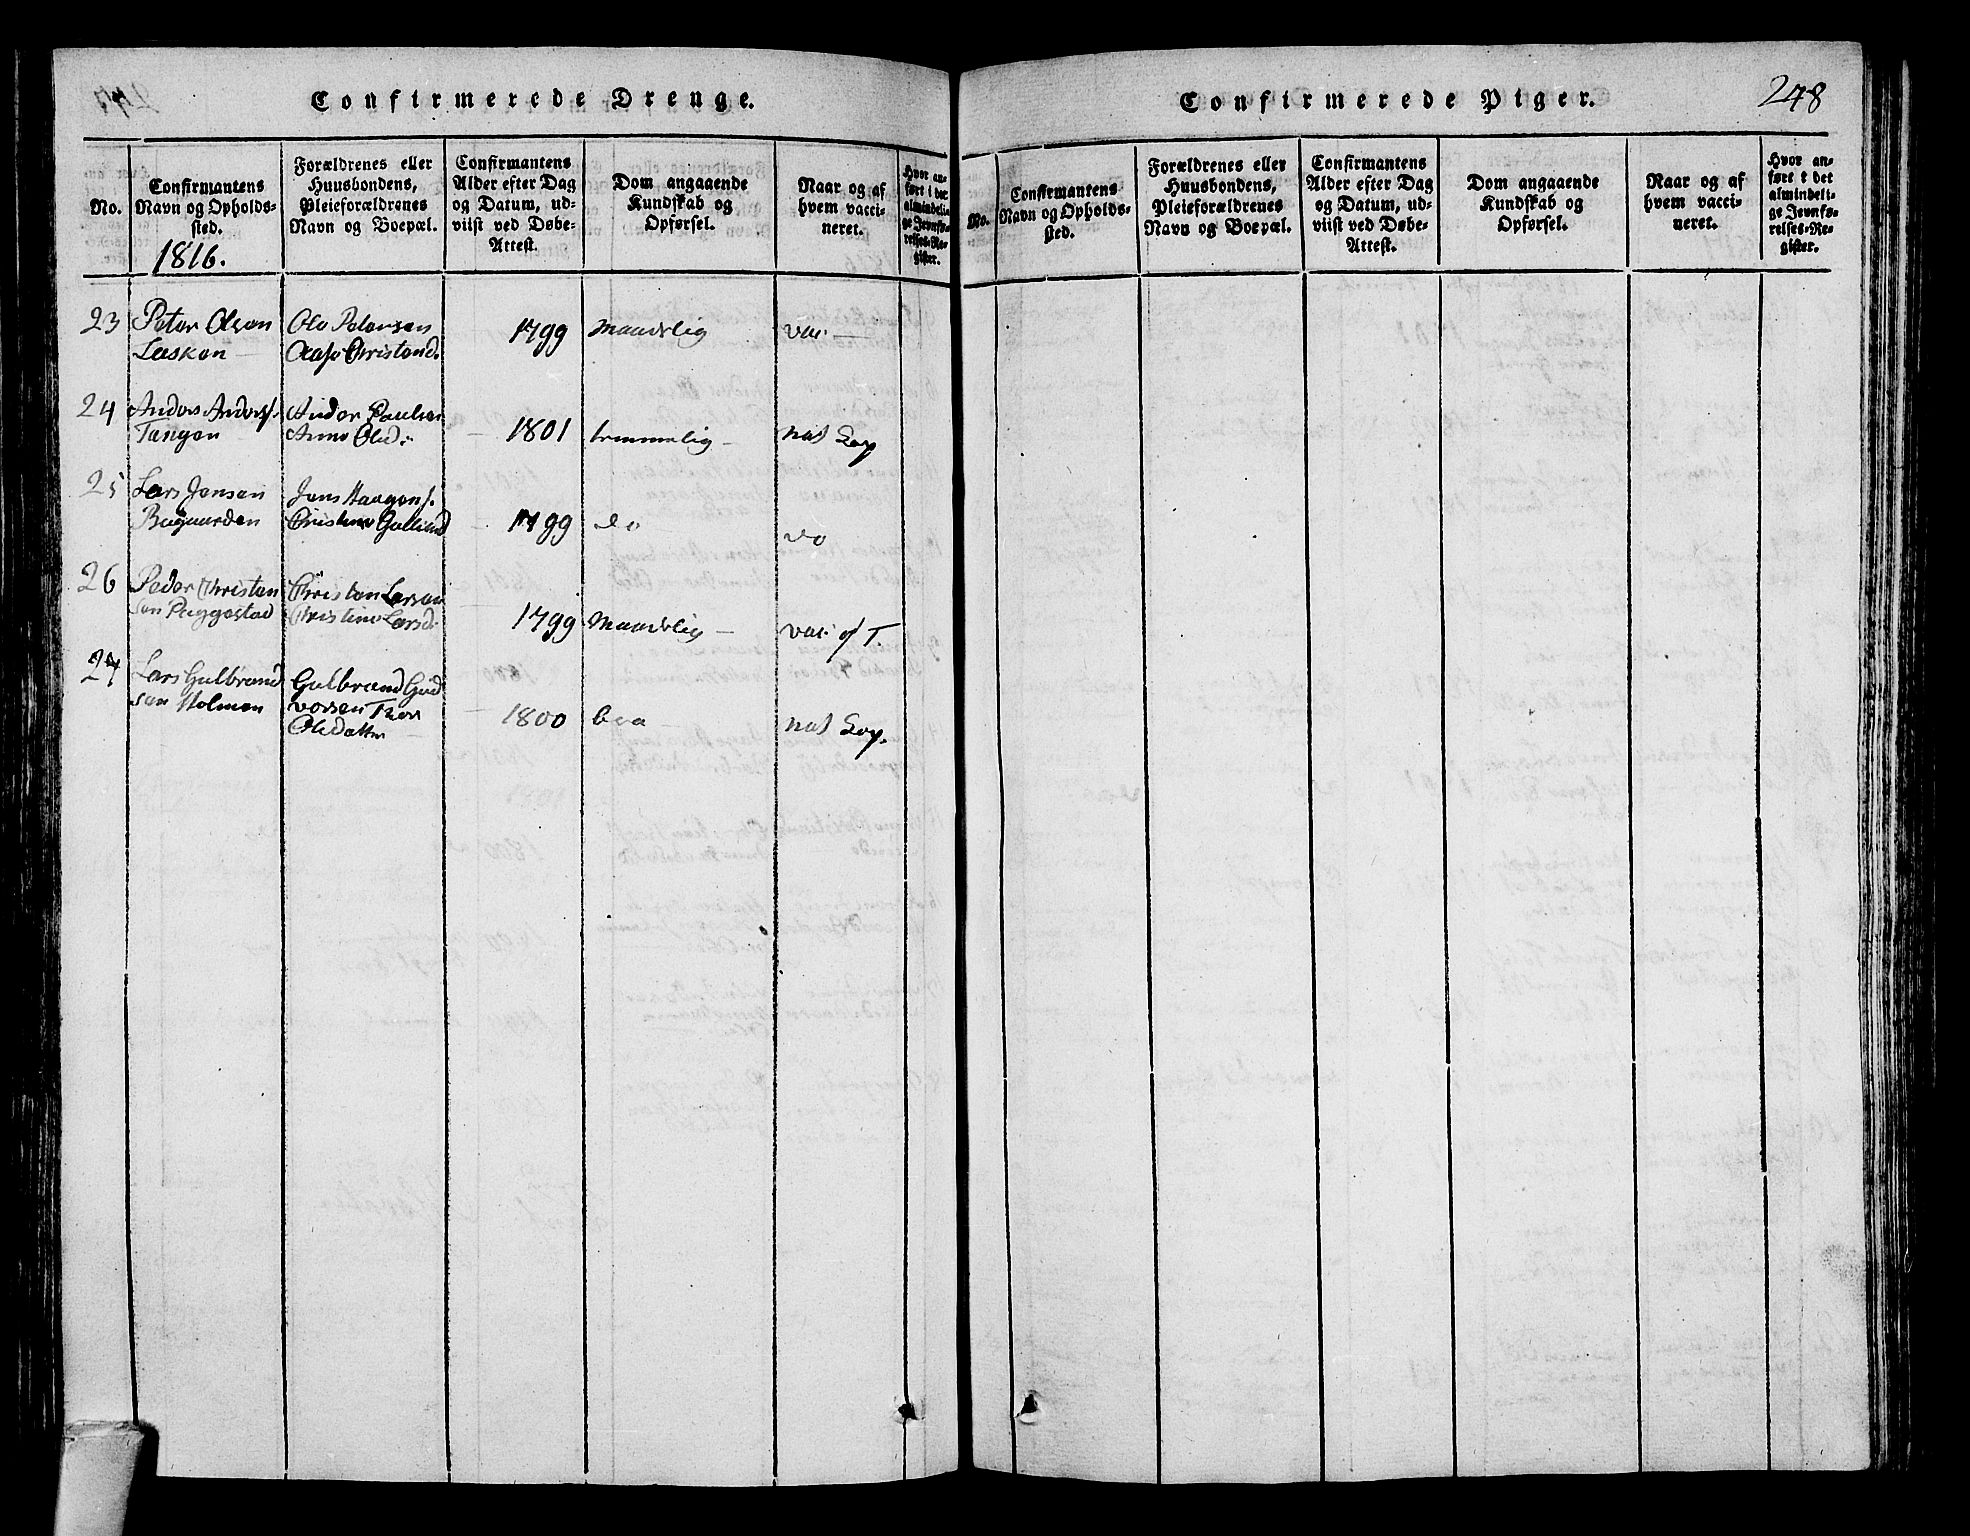 Confirmerede Drenge.
No.
Confirmantens
Navn og Opholds-
sted.
1816.
Forældrenes eller
Huusbondens,
Pleieforældrenes
Navn og Boepæl.
Confirmantens
Alder efter Dag
og Datum, ud-
viist ved Døbe-
Attest.
Dom angaaende
Kundskab og
Opførsel.
Naar og af
hvem vacci-
neret.
Hvor an-
ført i det
almindeli-
ge Jevnfø-
relses-Re-
gister.
23 Peter Olsen Ole Petersen 1799 Maadelig vac
Christensd.
24 Anders Anders. Ander Paulsen
Tangen Anne Olsd. 1801 temmelig nat Kop
25 Lars Jensen Jens Haagens.
1799 do do
26 Peder Christen Christen Larsen
sen Christine Larsd. 1799 Maadelig vac. af T.
27 Lars Gulbrand Gulbrand Gud
sen Holmen vorsen 1800 bra nat Kop.
Olsdatter
Confirmerede Piger.
248
No.
Confirmantens
Navn og Opholds-
sted.
Forældrenes eller
Huusbondens,
Pleieforældrenes
Navn og Boepæl.
Confirmantens
Alder efter Dag
og Datum, ud-
viist ved Døbe-
Attest.
Dom angaaende
Kundskab og
Opførsel.
Naar og af
hvem vacci-
neret.
Hvor an-
ført i det
almindeli-
ge Jevnfø-
relses-Re-
gister.